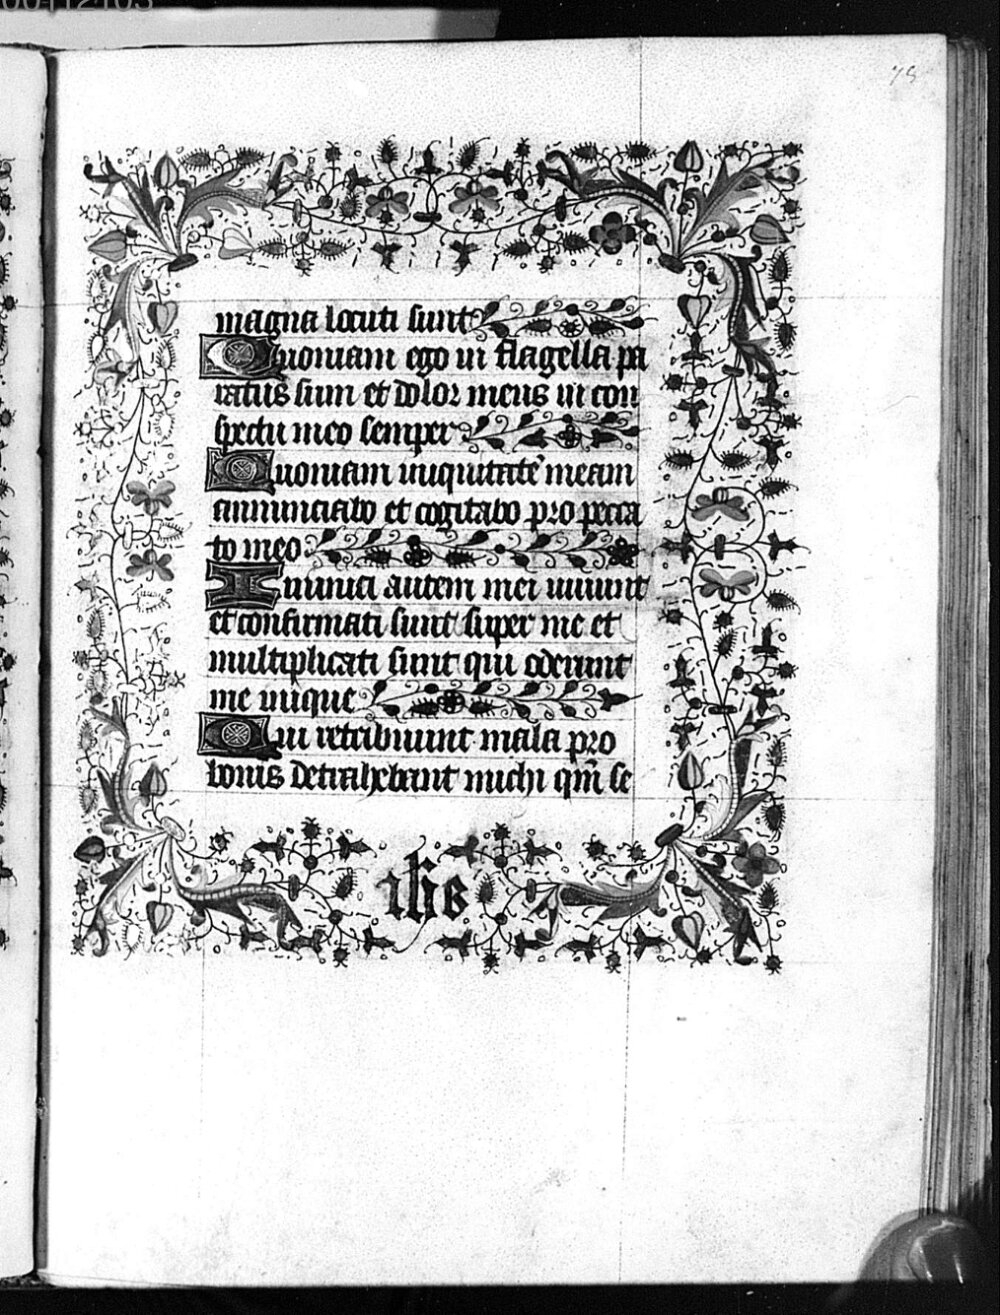 75
magna locuti sunt
Quoniam ego in flagella pa
ratus sum et dolor meus in con
spectu meo semper
Quoniam iniquitatē meam
annunciabo et cogitabo pro pecca
to meo
Inimici autem mei vivunt
et confirmati sunt super me et
multiplicati sunt qui oderunt
me inique
Qui retribuunt mala pro
bonis detrahebant michi qm̄ se
ihs